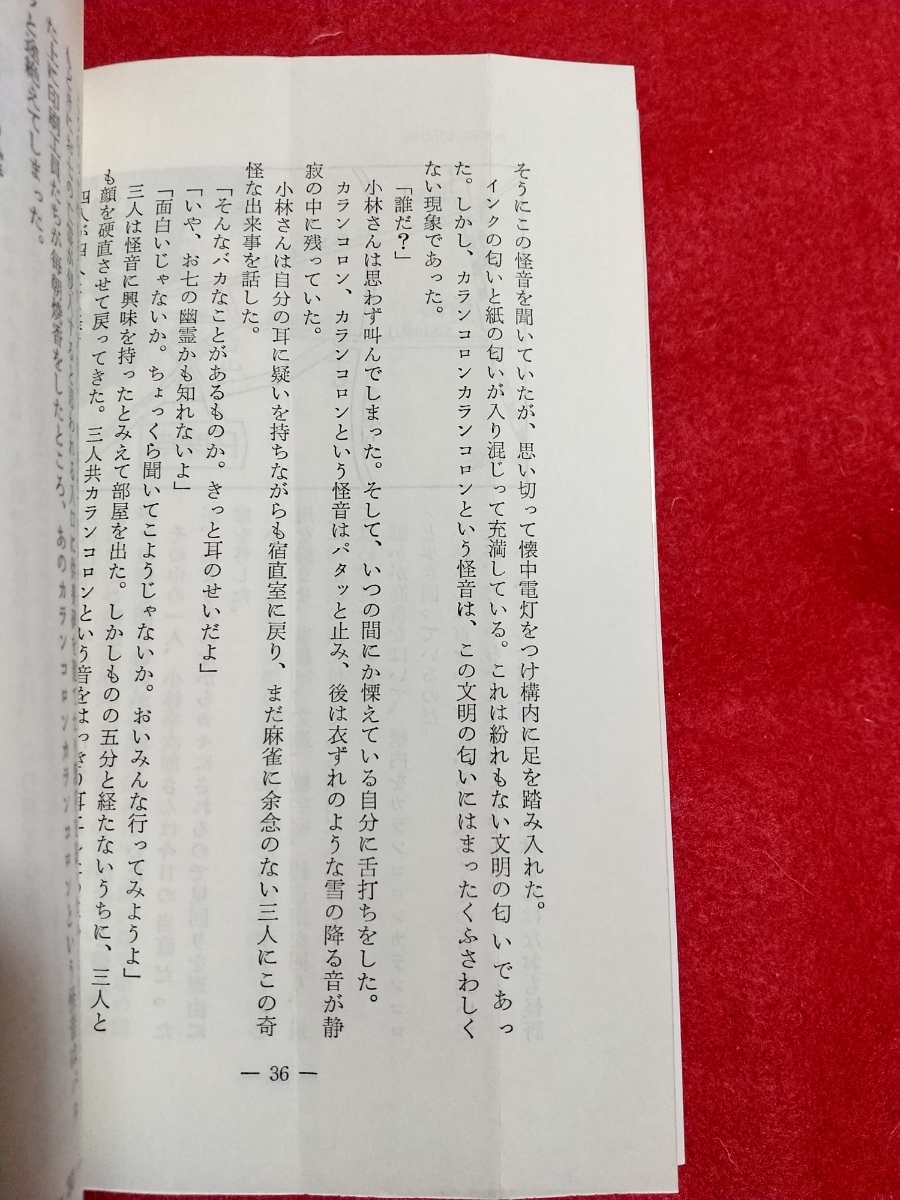 そうにこの怪音を聞いていたが、思い切って懐中電灯をつけ構内に足を踏み入れた。
インクの匂いと紙の匂いが入り混じって充満している。これは紛れもない文明の匂いであっ
た。しかし、カランコロンカランコロンという怪音は、この文明の匂いにはまったくふさわしく
ない現象であった。
「誰だ？」
小林さんは思わず叫んでしまった。そして、いつの間にか慄えている自分に舌打ちをした。
カランコロン、カランコロンという怪音はパタッと止み、後は衣ずれのような雪の降る音が静
寂の中に残っていた。
小林さんは自分の耳に疑いを持ちながらも宿直室に戻り、まだ麻雀に余念のない三人にこの奇
怪な出来事を話した。
「そんなバカなことがあるものか。きっと耳のせいだよ」
「いや、お七の幽霊かも知れないよ」
「面白いじゃないか。ちょっくら聞いてこようじゃないか。おいみんな行ってみようよ」
三人は怪音に興味を持ったとみえて部屋を出た。しかしものの五分と経たないうちに、三人と
も顔を硬直させて戻ってきた。三人共カランコロンという音をはっきり耳に
四人が
た上に印刷工員たちが毎朝焼香をしたところ、あのカランコロンカランコロンという
絶えてしまった。
— 36 —